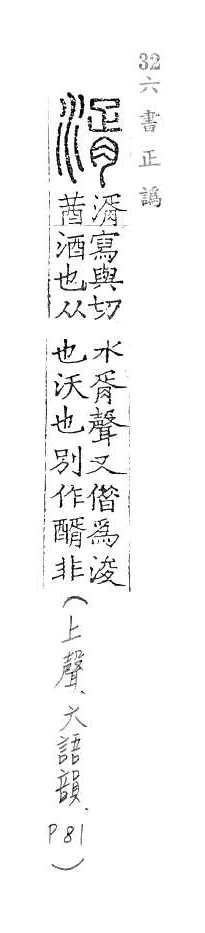 32六書正譌
湑
湑寫與切
莤酒也从
水胥聲又借為浚
也沃也別作醑非
(上聲、六語韻、P81)